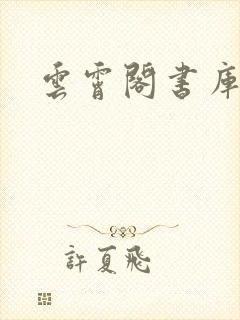 雲霄閣書庫
許夏飛